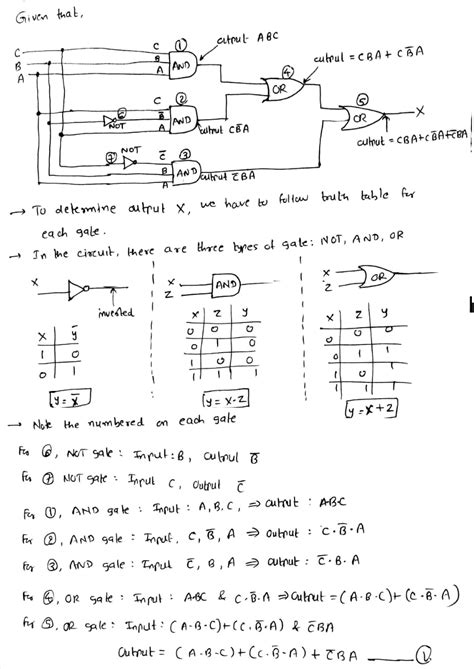 Given that,
C
B
A
C
B
A
①
AND
output ABC
④
OR
output = CBA + CB̄A
C
B̄
A
②
AND
output CB̄A
⑥
NOT
⑤
OR
X
output = CBA+CB̄A+C̄BA
⑦
NOT
C̄
B
A
③
AND
output C̄BA
→ To determine output X, we have to follow truth table for
each gate.
→ In the circuit, there are three types of gate: NOT, AND, OR
X
inverted
X ȳ
1 0
0 1
y = x̄
X
Z
AND
X Z Y
0 0 0
0 1 0
1 0 0
1 1 1
y = X·Z
X
Z
OR
X Z Y
0 0 0
0 1 1
1 0 1
1 1 1
y = X+Z
→ Note the numbered on each gate
For ⑥, NOT gate : Input : B, output B̄
For ⑦ NOT gate : Input C, Output C̄
For ①, AND gate : Input : A, B, C, ⇒ output : ABC
For ②, AND gate : Input, C, B̄, A ⇒ output : C·B̄·A
For ③, AND gate : Input C̄, B, A ⇒ output : C̄·B·A
For ④, OR gate : Input : ABC & C·B̄·A ⇒ output = (A·B·C)+(C·B̄·A)
For ⑤, OR gate : Input : (A·B·C)+(C·B̄·A) & C̄BA
Output = (A·B·C)+(C·B̄·A) + C̄BA ——— ①